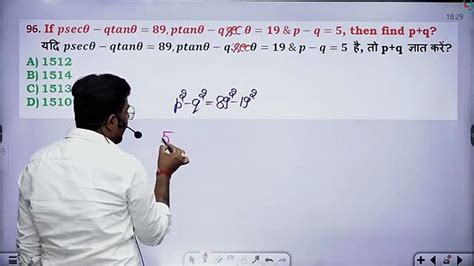 18:29
96. If psecθ − qtanθ = 89, ptanθ − qsecθ = 19 & p − q = 5, then find p+q?
यदि psecθ − qtanθ = 89, ptanθ − qsecθ = 19 & p − q = 5 है, तो p+q ज्ञात करें?
A) 1512
B) 1514
C) 1513
D) 1510
p²-q² = 89²-19²
5
18:29